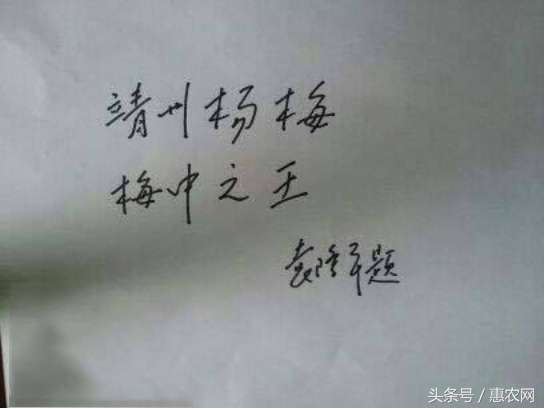 靖州杨梅
梅中之王
袁隆平题
头条号／惠农网